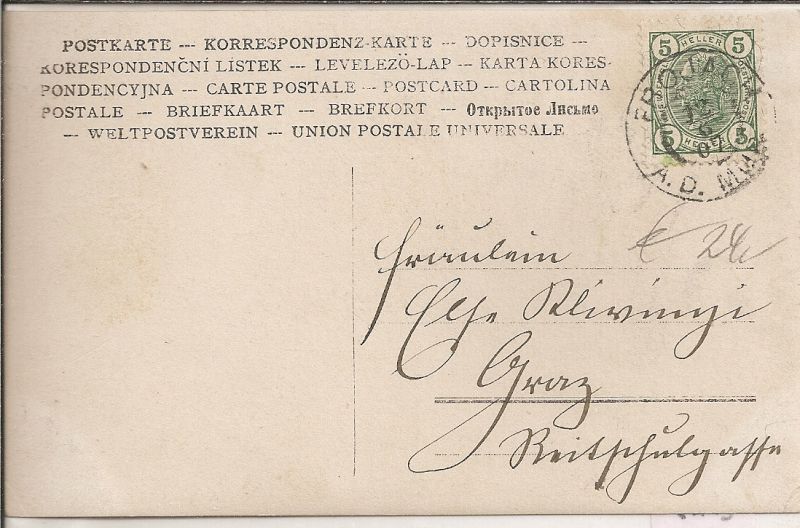 POSTKARTE --- KORRESPONDENZ-KARTE --- DOPISNICE ---
KORESPONDENČNÍ LÍSTEK --- LEVELEZÖ-LAP --- KARTA KORES-
PONDENCYJNA --- CARTE POSTALE --- POSTCARD --- CARTOLINA
POSTALE --- BRIEFKAART --- BREFKORT --- Открытое Лисьмо
--- WELTPOSTVEREIN --- UNION POSTALE UNIVERSALE ---
5 HELLER 5
5 HELLER 5
A. D. MUR
Fräulein
Else Klivinyi
Graz
Reitschulgasse